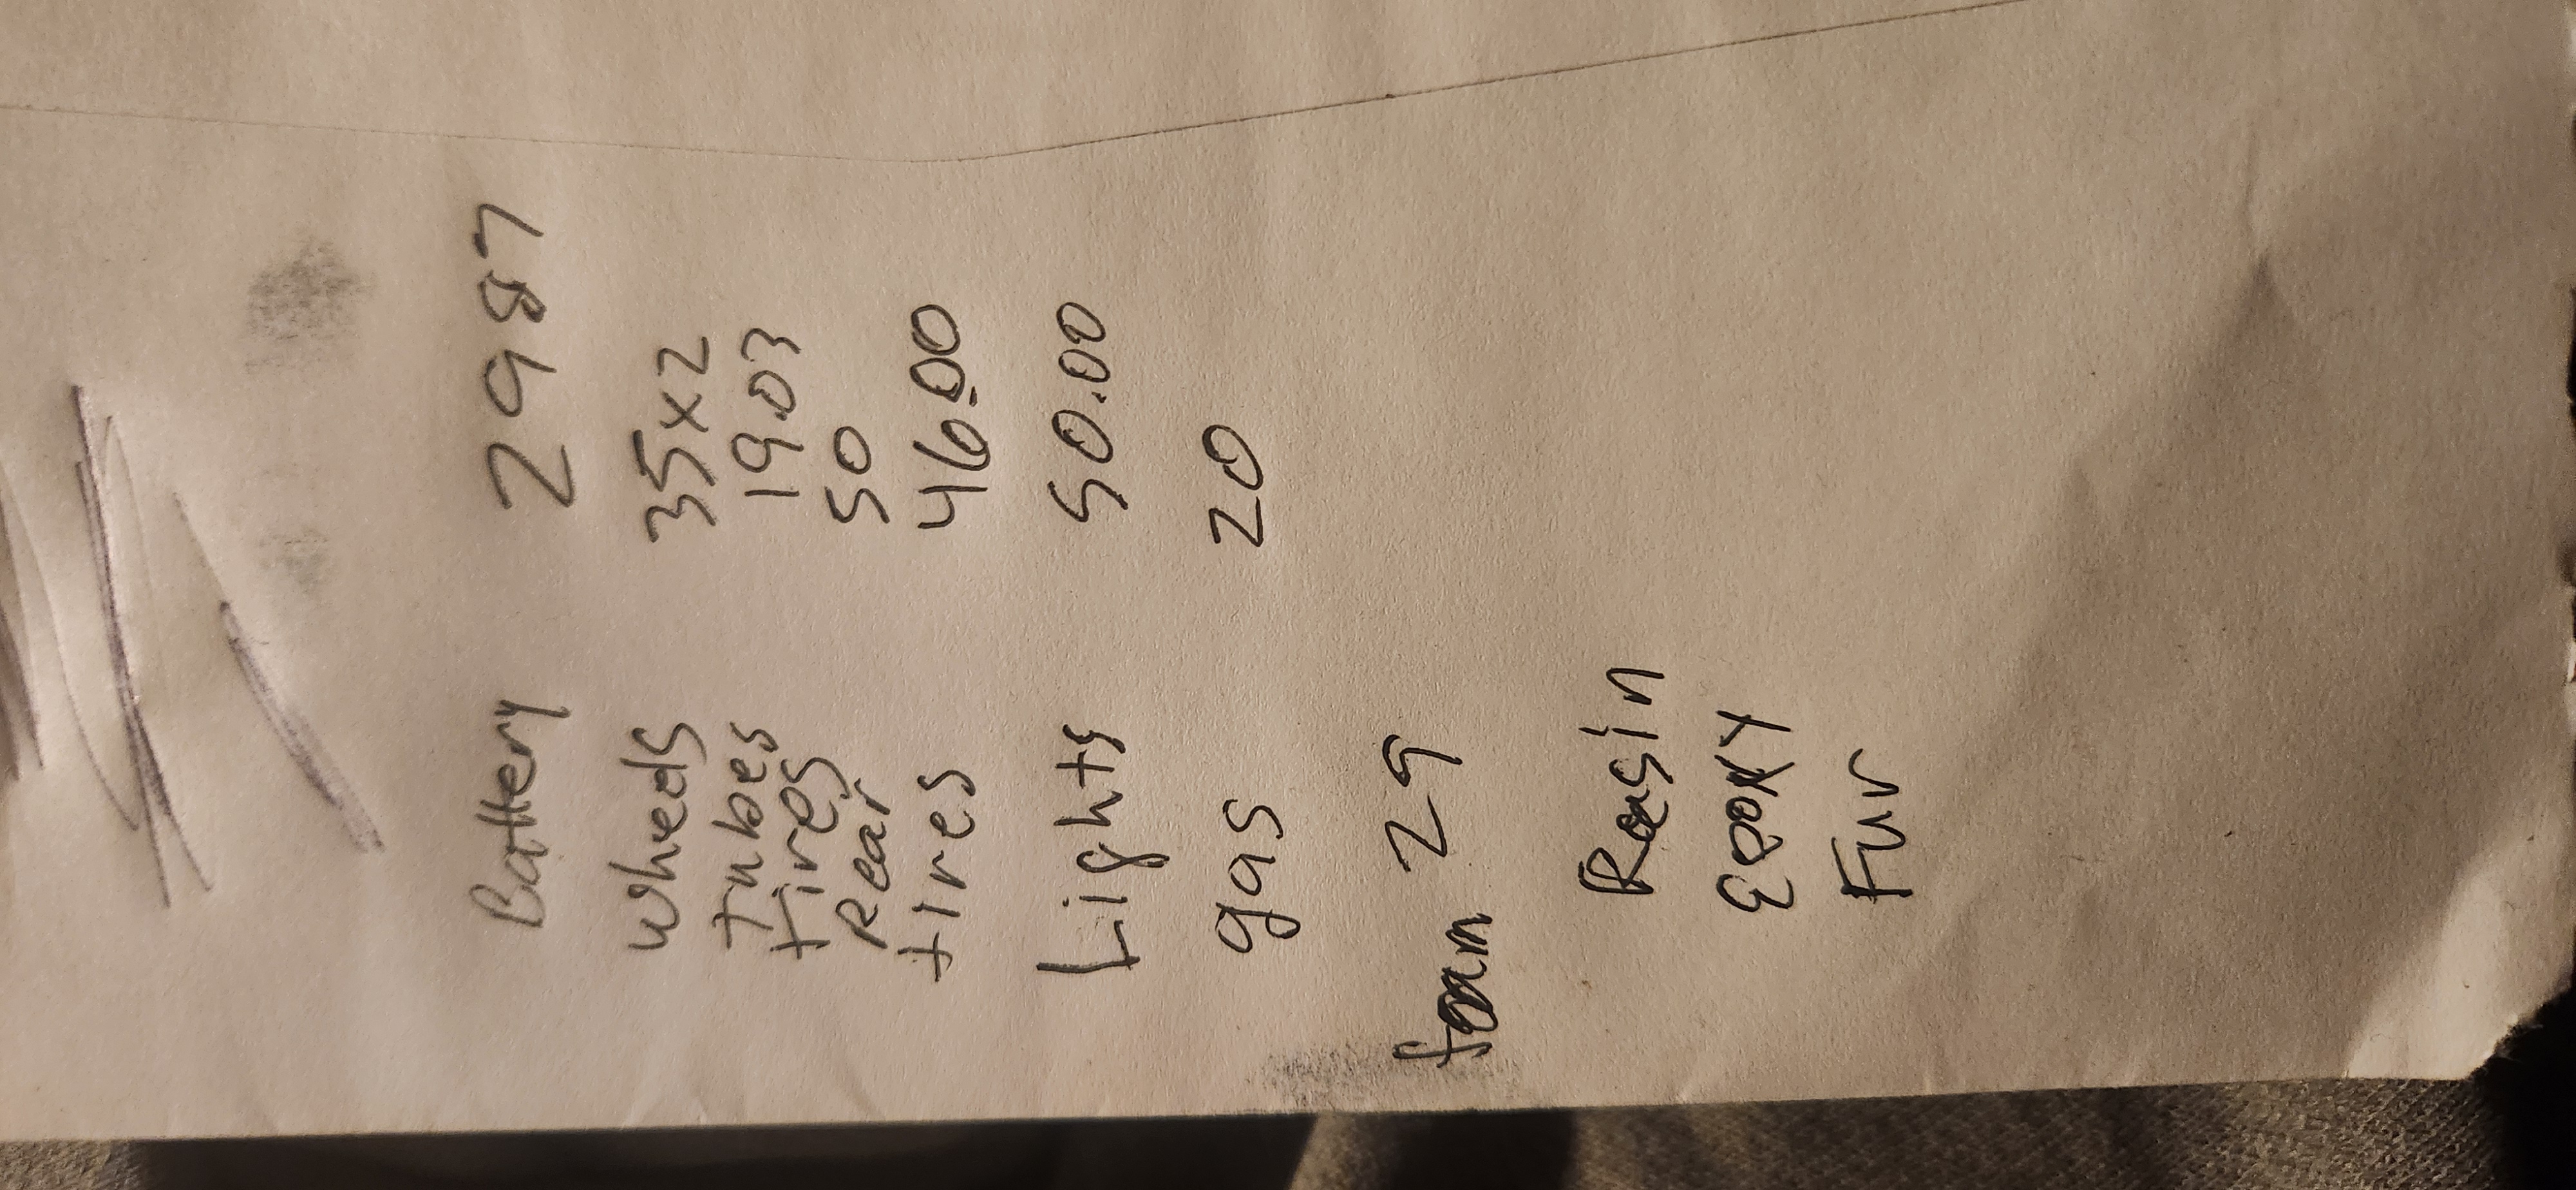 Battery 2987
Wheels 35x2
tubes 19.03
tires 50
Rear
tires 46.00
Lights 50.00
gas 20
foam 29
Resin
Epoxy
Fur